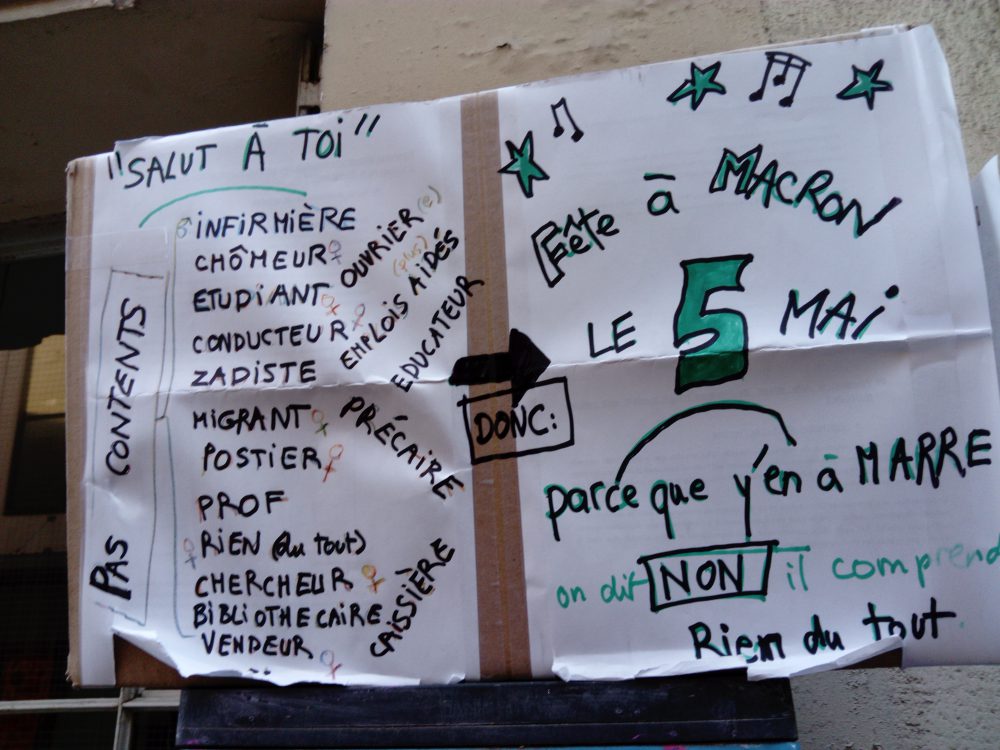 "SALUT À TOi"
PAS CONTENTS
iNFIRMIÈRE
CHÔMEUR♀
ETUDiANT♀
CONDUCTEUR♀
ZADISTE
MIGRANT♀
POSTIER♀
PROF
♀RIEN (du tout)
CHERCHEUR♀
BIBLIOTHECAIRE
VENDEUR♀
OUVRIER(e)
(plus)
EMPLOIS AIDÉS
EDUCATEUR
PRÈCAIRE
CAISSIÈRE
DONC:
Fête à MACRON
LE 5 MAi
parce que y'en à MARRE
on dit NON il comprend
Rien du tout